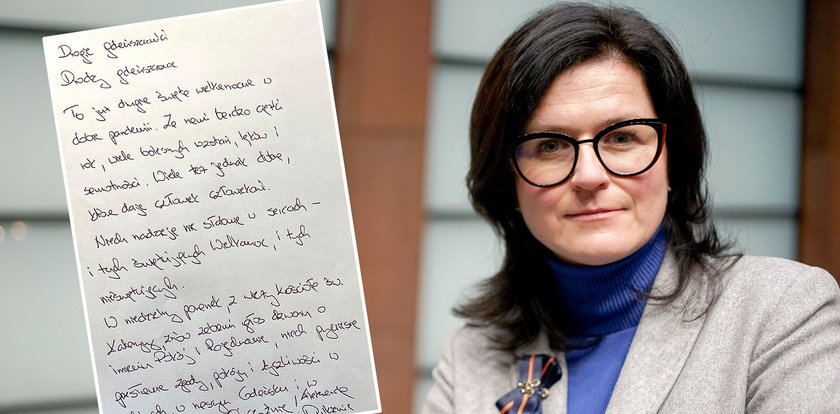 Drogie gdańszczanki
Drodzy gdańszczanie
To już drugie święta wielkanocne w
dobie pandemii. Za nami bardzo ciężki
rok, wiele bolesnych rozstań, lęków i
samotności. Wiele też jednak dobra,
które daje człowiek człowiekowi.
Niech nadzieja nie słabnie w sercach –
i tych świętujących Wielkanoc, i tych
nieświętujących.
W niedzielny poranek, z wieży kościoła św.
Katarzyny, znów zabrzmi głos dzwonu o
imieniu Pokój i Pojednanie, niech przyniesie
pragnienie zgody, pokoju i życzliwości w
w naszym Gdańsku i w
Aleksandra
Dulkiewicz